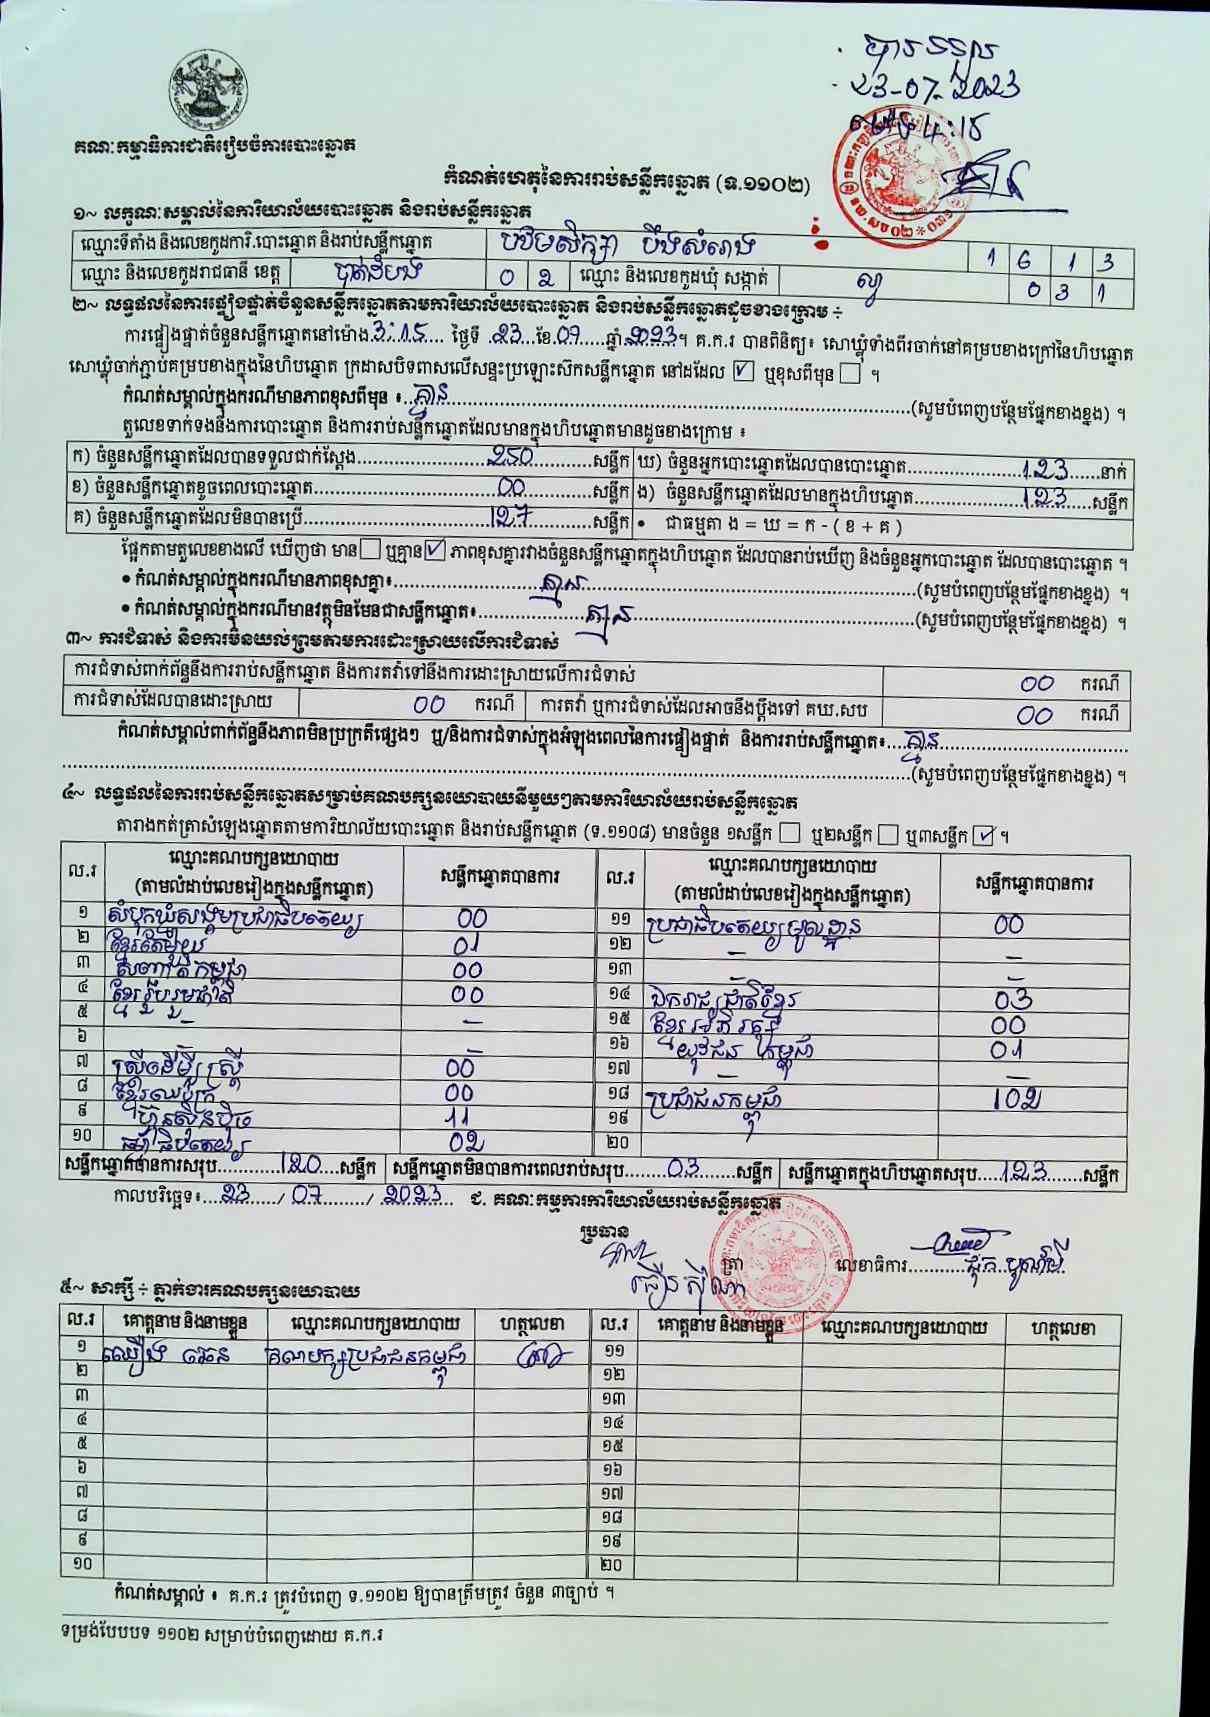 បានទទួល
23-07-2023
ម៉ោង 4:15
គណៈកម្មាធិការជាតិរៀបចំការបោះឆ្នោត
កំណត់ហេតុនៃការរាប់សន្លឹកឆ្នោត (ទ.១១០២)
១~ លក្ខណៈសម្គាល់នៃការិយាល័យបោះឆ្នោត និងរាប់សន្លឹកឆ្នោត
ឈ្មោះទីតាំង និងលេខកូដការិ.បោះឆ្នោត និងរាប់សន្លឹកឆ្នោត បឋមសិក្សា បឹងសំរោង 1 6 1 3
ឈ្មោះ និងលេខកូដរាជធានី ខេត្ត បាត់ដំបង 0 2 ឈ្មោះ និងលេខកូដឃុំ សង្កាត់ ល្វា 0 3 1
២~ លទ្ធផលនៃការផ្ទៀងផ្ទាត់ចំនួនសន្លឹកឆ្នោតតាមការិយាល័យបោះឆ្នោត និងរាប់សន្លឹកឆ្នោតដូចខាងក្រោម ÷
ការផ្ទៀងផ្ទាត់ចំនួនសន្លឹកឆ្នោតនៅម៉ោង 3:15 ថ្ងៃទី 23 ខែ 07 ឆ្នាំ 2023 ។ គ.ក.រ បានពិនិត្យ៖ សោឃ្លុំទាំងពីរចាក់នៅគម្របខាងក្រៅនៃហិបឆ្នោត
សោឃ្លុំចាក់ភ្ជាប់គម្របខាងក្នុងនៃហិបឆ្នោត ក្រដាសបិទពាសលើសន្ទះប្រឡោះស៊កសន្លឹកឆ្នោត នៅដដែល ✓ ឬខុសពីមុន ។
កំណត់សម្គាល់ក្នុងករណីមានភាពខុសពីមុន ៖ គ្មាន (សូមបំពេញបន្ថែមផ្នែកខាងខ្នង) ។
តួលេខទាក់ទងនឹងការបោះឆ្នោត និងការរាប់សន្លឹកឆ្នោតដែលមានក្នុងហិបឆ្នោតមានដូចខាងក្រោម ៖
ក) ចំនួនសន្លឹកឆ្នោតដែលបានទទួលជាក់ស្តែង 250 សន្លឹក ឃ) ចំនួនអ្នកបោះឆ្នោតដែលបានបោះឆ្នោត 123 នាក់
ខ) ចំនួនសន្លឹកឆ្នោតខូចពេលបោះឆ្នោត 00 សន្លឹក ង) ចំនួនសន្លឹកឆ្នោតដែលមានក្នុងហិបឆ្នោត 123 សន្លឹក
គ) ចំនួនសន្លឹកឆ្នោតដែលមិនបានប្រើ 127 សន្លឹក • ជាធម្មតា ង = ឃ = ក - ( ខ + គ )
ផ្អែកតាមតួលេខខាងលើ ឃើញថា មាន ឬគ្មាន ✓ ភាពខុសគ្នារវាងចំនួនសន្លឹកឆ្នោតក្នុងហិបឆ្នោត ដែលបានរាប់ឃើញ និងចំនួនអ្នកបោះឆ្នោត ដែលបានបោះឆ្នោត ។
• កំណត់សម្គាល់ក្នុងករណីមានភាពខុសគ្នា៖ គ្មាន (សូមបំពេញបន្ថែមផ្នែកខាងខ្នង) ។
• កំណត់សម្គាល់ក្នុងករណីមានវត្ថុមិនមែនជាសន្លឹកឆ្នោត៖ គ្មាន (សូមបំពេញបន្ថែមផ្នែកខាងខ្នង) ។
៣~ ការជំទាស់ និងការមិនយល់ព្រមតាមការដោះស្រាយលើការជំទាស់
ការជំទាស់ពាក់ព័ន្ធនឹងការរាប់សន្លឹកឆ្នោត និងការតវ៉ាទៅនឹងការដោះស្រាយលើការជំទាស់ 00 ករណី
ការជំទាស់ដែលបានដោះស្រាយ 00 ករណី ការតវ៉ា ឬការជំទាស់ដែលអាចនឹងប្តឹងទៅ គឃ.សប 00 ករណី
កំណត់សម្គាល់ពាក់ព័ន្ធនឹងភាពមិនប្រក្រតីផ្សេងៗ ឬ/និងការជំទាស់ក្នុងអំឡុងពេលនៃការផ្ទៀងផ្ទាត់ និងការរាប់សន្លឹកឆ្នោត៖ គ្មាន
(សូមបំពេញបន្ថែមផ្នែកខាងខ្នង) ។
៤~ លទ្ធផលនៃការរាប់សន្លឹកឆ្នោតសម្រាប់គណបក្សនយោបាយនីមួយៗតាមការិយាល័យរាប់សន្លឹកឆ្នោត
តារាងកត់ត្រាសំឡេងឆ្នោតតាមការិយាល័យបោះឆ្នោត និងរាប់សន្លឹកឆ្នោត (ទ.១១០៨) មានចំនួន ១សន្លឹក ឬ២សន្លឹក ឬ៣សន្លឹក ✓ ។
ល.រ ឈ្មោះគណបក្សនយោបាយ (តាមលំដាប់លេខរៀងក្នុងសន្លឹកឆ្នោត) សន្លឹកឆ្នោតបានការ ល.រ ឈ្មោះគណបក្សនយោបាយ (តាមលំដាប់លេខរៀងក្នុងសន្លឹកឆ្នោត) សន្លឹកឆ្នោតបានការ
១ សំបុកឃ្មុំសង្គមប្រជាធិបតេយ្យ 00 ១១ ប្រជាធិបតេយ្យមូលដ្ឋាន 00
២ ខ្មែរតែមួយ 01 ១២ – –
៣ សញ្ជាតិកម្ពុជា 00 ១៣ – –
៤ ខ្មែររួបរួមជាតិ 00 ១៤ ឯករាជ្យជាតិខ្មែរ 03
៥ – – ១៥ ខ្មែរអភិរក្ស 00
៦ – – ១៦ យុវជន កម្ពុជា 01
៧ ស្ត្រីដើម្បីស្ត្រី 00 ១៧ – –
៨ ខ្មែរឈប់ក្រ 00 ១៨ ប្រជាជនកម្ពុជា 102
៩ ហ៊្វុនស៊ិនប៉ិច 11 ១៩
១០ ធម្មាធិបតេយ្យ 02 ២០
សន្លឹកឆ្នោតបានការសរុប 120 សន្លឹក សន្លឹកឆ្នោតមិនបានការពេលរាប់សរុប 03 សន្លឹក សន្លឹកឆ្នោតក្នុងហិបឆ្នោតសរុប 123 សន្លឹក
កាលបរិច្ឆេទ៖ 23 / 07 / 2023 ជ. គណៈកម្មការការិយាល័យរាប់សន្លឹកឆ្នោត
ប្រធាន
ត្រា លេខាធិការ
៥~ សាក្សី ÷ ភ្នាក់ងារគណបក្សនយោបាយ
ល.រ គោត្តនាម និងនាមខ្លួន ឈ្មោះគណបក្សនយោបាយ ហត្ថលេខា ល.រ គោត្តនាម និងនាមខ្លួន ឈ្មោះគណបក្សនយោបាយ ហត្ថលេខា
១ គណបក្សប្រជាជនកម្ពុជា ១១
២ ១២
៣ ១៣
៤ ១៤
៥ ១៥
៦ ១៦
៧ ១៧
៨ ១៨
៩ ១៩
១០ ២០
កំណត់សម្គាល់ ៖ គ.ក.រ ត្រូវបំពេញ ទ.១១០២ ឱ្យបានត្រឹមត្រូវ ចំនួន ៣ច្បាប់ ។
ទម្រង់បែបបទ ១១០២ សម្រាប់បំពេញដោយ គ.ក.រ